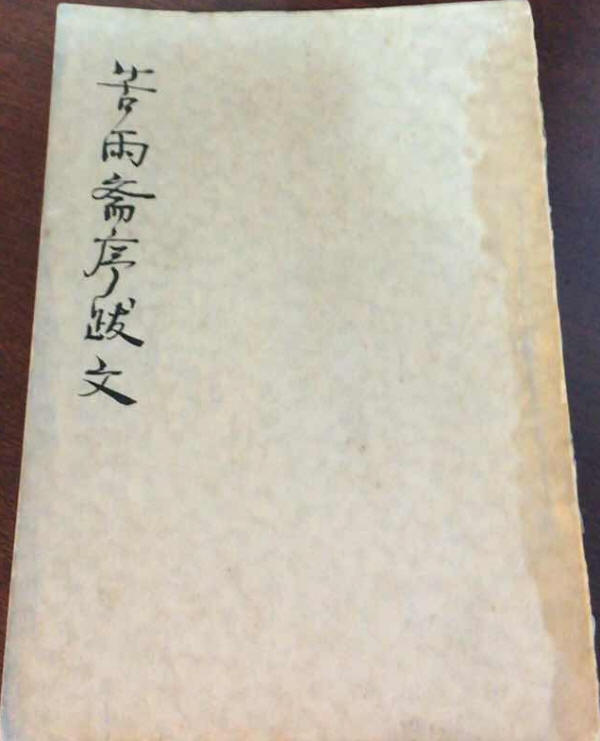 苦雨斎序跋文